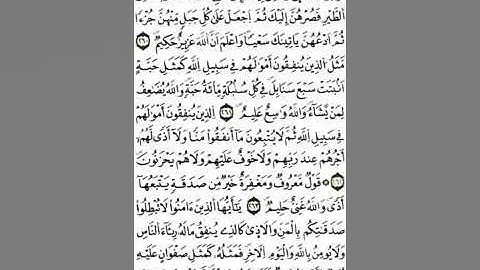 اَ۬لطَّيْرِ فَصُرْهُنَّ إِلَيْكَ ثُمَّ اَ۪جْعَلْ عَلَىٰ كُلِّ جَبَلٍ مِّنْهُنَّ جُزْءاٗ
ثُمَّ اَ۟دْعُهُنَّ يَاتِينَكَ سَعْياٗ وَاعْلَمَ اَنَّ اَ۬للَّهَ عَزِيزٌ حَكِيمٌ ٢٦٠
مَّثَلُ اُ۬لذِينَ يُنفِقُونَ أَمْوَٰلَهُمْ فِے سَبِيلِ اِ۬للَّهِ كَمَثَلِ حَبَّةٍ
اَنۢبَتَتْ سَبْعَ سَنَابِلَ فِے كُلِّ سُنۢبُلَةٖ مِّاْئَةُ حَبَّةٖ وَاللَّهُ يُضَٰعِفُ
لِمَنْ يَّشَآءُ وَاللَّهُ وَٰسِعٌ عَلِيمٌ ٢٦١ اِ۬لذِينَ يُنفِقُونَ أَمْوَٰلَهُمْ
فِے سَبِيلِ اِ۬للَّهِ ثُمَّ لَا يُتْبِعُونَ مَآ أَنفَقُواْ مَنّاٗ وَلَآ أَذىٗ لَّهُمُ
أَجْرُهُمْ عِندَ رَبِّهِمْ وَلَا خَوْفٌ عَلَيْهِمْ وَلَا هُمْ يَحْزَنُونَ
٢٦٢ قَوْلٞ مَّعْرُوفٞ وَمَغْفِرَةٌ خَيْرٞ مِّن صَدَقَةٖ يَتْبَعُهَآ
أَذىٗ وَاللَّهُ غَنِيٌّ حَلِيمٞ ٢٦٣ يَٰٓأَيُّهَا اَ۬لذِينَ ءَامَنُواْ لَا تُبْطِلُواْ
صَدَقَٰتِكُم بِالْمَنِّ وَالَاذ۪ىٰ كَالذِے يُنفِقُ مَالَهُۥ رِئَآءَ اَ۬لنَّاسِ
وَلَا يُومِنُ بِاللَّهِ وَالْيَوْمِ اِ۬لَاخِرِ فَمَثَلُهُۥ كَمَثَلِ صَفْوَانٍ عَلَيْهِ